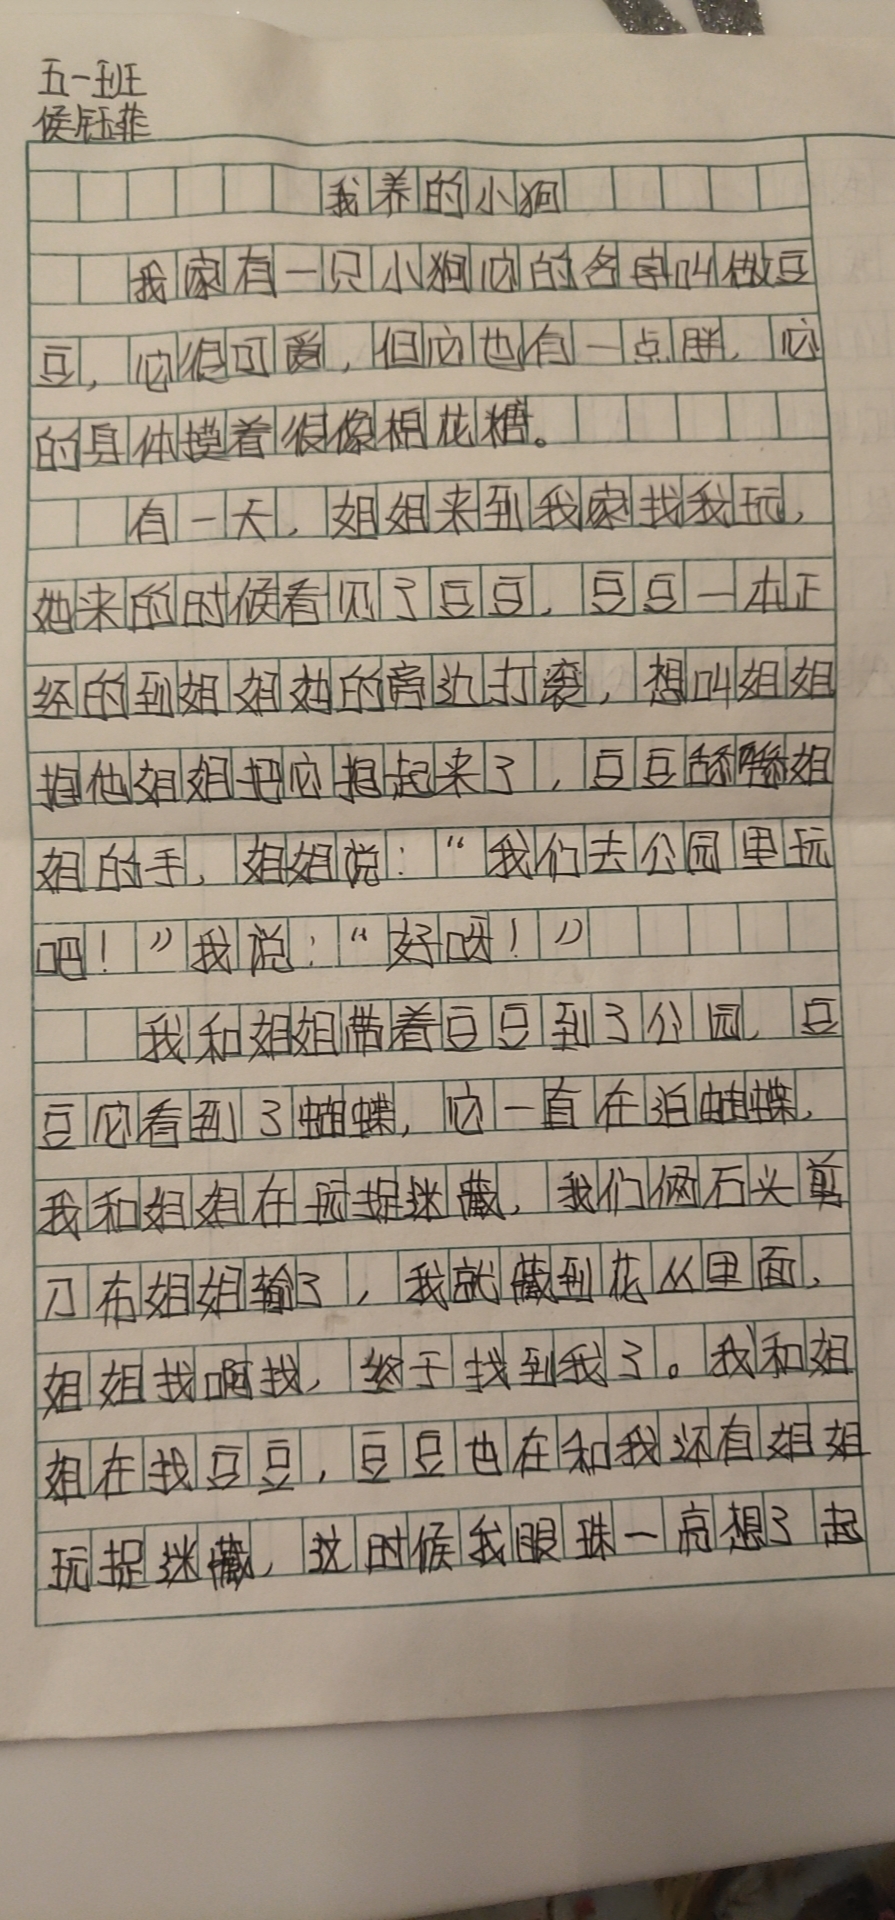 五一班
侯钰菲
我养的小狗
我家有一只小狗它的名字叫做豆
豆，它很可爱，但它也有一点胖，它
的身体摸着很像棉花糖。
有一天，姐姐来到我家找我玩，
她来的时候看见了豆豆，豆豆一本正
经的到姐姐她的旁边打滚，想叫姐姐
抱他姐姐把它抱起来了，豆豆舔舔姐
姐的手，姐姐说：“我们去公园里玩
吧！”我说：“好呀！”
我和姐姐带着豆豆到了公园，豆
豆它看到了蝴蝶，它一直在追蝴蝶，
我和姐姐在玩捉迷藏，我们俩石头剪
刀布姐姐输了，我就藏到花丛里面，
姐姐找啊找，终于找到我了。我和姐
姐在找豆豆，豆豆也在和我还有姐姐
玩捉迷藏，这时候我眼珠一亮想了起